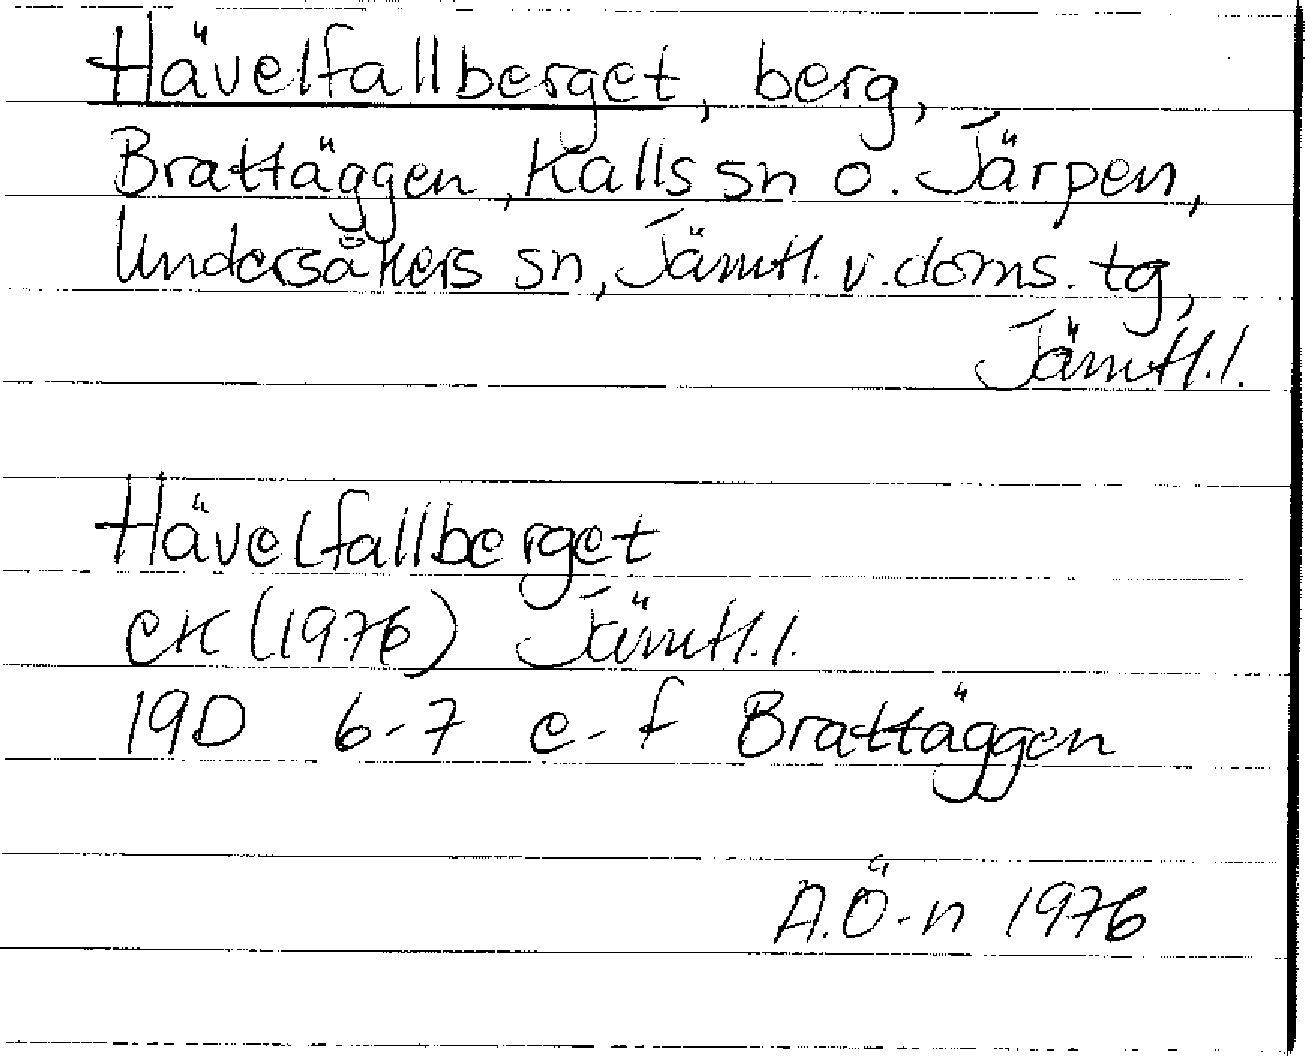 Hävelfallberget, berg,
Brattäggen, Kalls sn o. Järpen,
Undersåkers sn, Jämtl. v. doms. tg,
Jämtl. l.
Hävelfallberget
eK (1976) Jämtl. l.
19D 6-7 e-f Brattäggen
A.Ö-n 1976